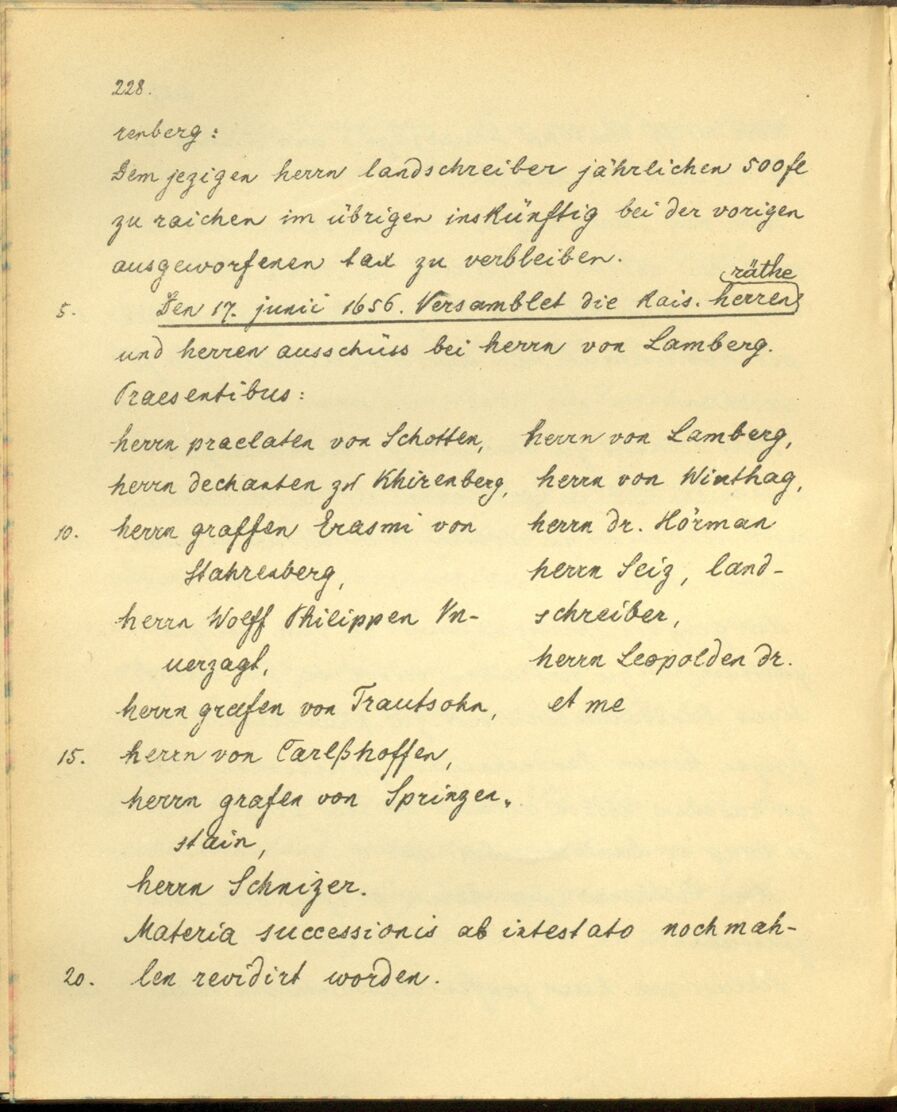 228.
renberg:
Dem jezigen herrn landschreiber jährlichen 500 fl
zu raichen im übrigen inskünftig bei der vorigen
ausgeworfenen tax zu verbleiben.
räthe
5. Den 17. junii 1656. Versamblet die kais. herren
und herren ausschüss bei herrn von Lamberg.
Praesentibus:
herrn praelaten von Schotten, herrn von Lamberg,
herrn dechanten zu Khirenberg, herrn von Winthag,
10. herrn graffen Erasmi von herrn dr. Hörman
Stahrenberg, herrn Seiz, land-
herrn Wolff Philippen Vn- schreiber,
uerzagt, herrn Leopolden dr.
herrn grafen von Trautsohn, et me
15. herrn von Carlßhoffen,
herrn grafen von Springen-
stain,
herrn Schnizer.
Materia successionis ab intestato nochmah-
20. len revidirt worden.